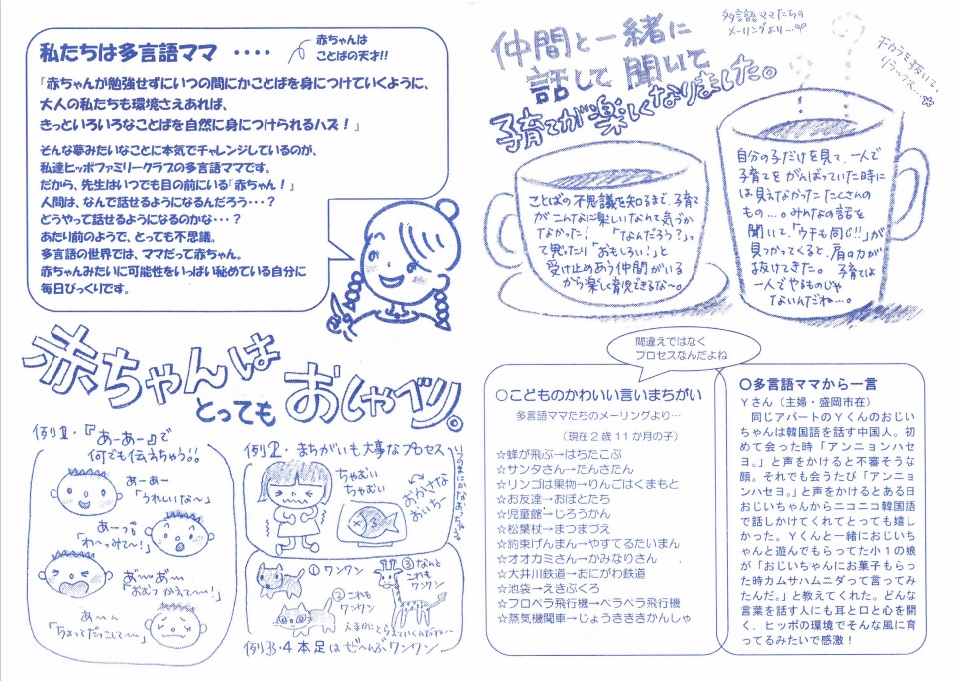 私たちは多言語ママ ‥‥
赤ちゃんは
ことばの天才!!
「赤ちゃんが勉強せずにいつの間にかことばを身につけていくように、
大人の私たちも環境さえあれば、
きっといろいろなことばを自然に身につけられるハズ！」
そんな夢みたいなことに本気でチャレンジしているのが、
私達ヒッポファミリークラブの多言語ママです。
だから、先生はいつでも目の前にいる「赤ちゃん！」
人間は、なんで話せるようになるんだろう・・・？
どうやって話せるようになるのかな・・・？
あたり前のようで、とっても不思議。
多言語の世界では、ママだって赤ちゃん。
赤ちゃんみたいに可能性をいっぱい秘めている自分に
毎日びっくりです。
赤ちゃんは
とっても おしゃべり。
例1・『あーあー』で
何でも伝えちゃう!!
あーあー
「うれしいな〜」
あーっ
「わ〜っみて〜！」
あ゛〜あ゛〜
あ〜〜
「ちょっとだっこして〜」
例2・まちがいも大事なプロセス
ちゃむい
ちゃむい
おかけな
おいちー
①ワンワン
②これも
ワンワン
③なんと
これも
ワンワン
例3・4本足はぜ〜んぶワンワン
仲間と一緒に
話して 聞いて
子育てが楽しくなりました。
多言語ママたちの
メーリングより…
チカラを抜いて、
リラックス…
ことばの不思議を知るまで、子育て
がこんなに楽しいなんて気づか
なかった！ 「なんだろう？」っ
て思ったり「おもしろい！」と
受け止めあう仲間がいる
から楽しく育児できるな〜。
自分の子だけを見て、一人で
子育てをがんばっていた時に
は見えなかったたくさんの
もの…。みんなの話を
聞いて、「ウチも同じ!!」が
見つかってくると、肩の力が
抜けてきた。 子育ては
一人でやるものじゃ
ないんだね…。
間違えではなく
プロセスなんだよね
○こどものかわいい言いまちがい
多言語ママたちのメーリングより…
（現在２歳１１か月の子）
☆蜂が飛ぶ→はちたこぶ
☆サンタさん→たんさたん
☆リンゴは果物→りんごはくまもと
☆お友達→おぼとたち
☆児童館→じろうかん
☆松葉杖→まつまづえ
☆約束げんまん→やすてるたいまん
☆オオカミさん→かみなりさん
☆大井川鉄道→おにがわ鉄道
☆池袋→えきぶくろ
☆プロペラ飛行機→ペラペラ飛行機
☆蒸気機関車→じょうききききかんしゃ
○多言語ママから一言
Ｙさん（主婦・盛岡市在）
同じアパートのＹくんのおじい
ちゃんは韓国語を話す中国人。初
めて会った時「アンニョンハセ
ヨ。」と声をかけると不審そうな
顔。それでも会うたび「アンニョ
ンハセヨ。」と声をかけるとある日
おじいちゃんからニコニコ韓国語
で話しかけてくれてとっても嬉し
かった。Ｙくんと一緒におじいち
ゃんと遊んでもらってた小１の娘
が「おじいちゃんにお菓子もらっ
た時カムサハムニダって言ってみ
たんだ。」と教えてくれた。どんな
言葉を話す人にも耳と口と心を開
く、ヒッポの環境でそんな風に育
ってるみたいで感激！